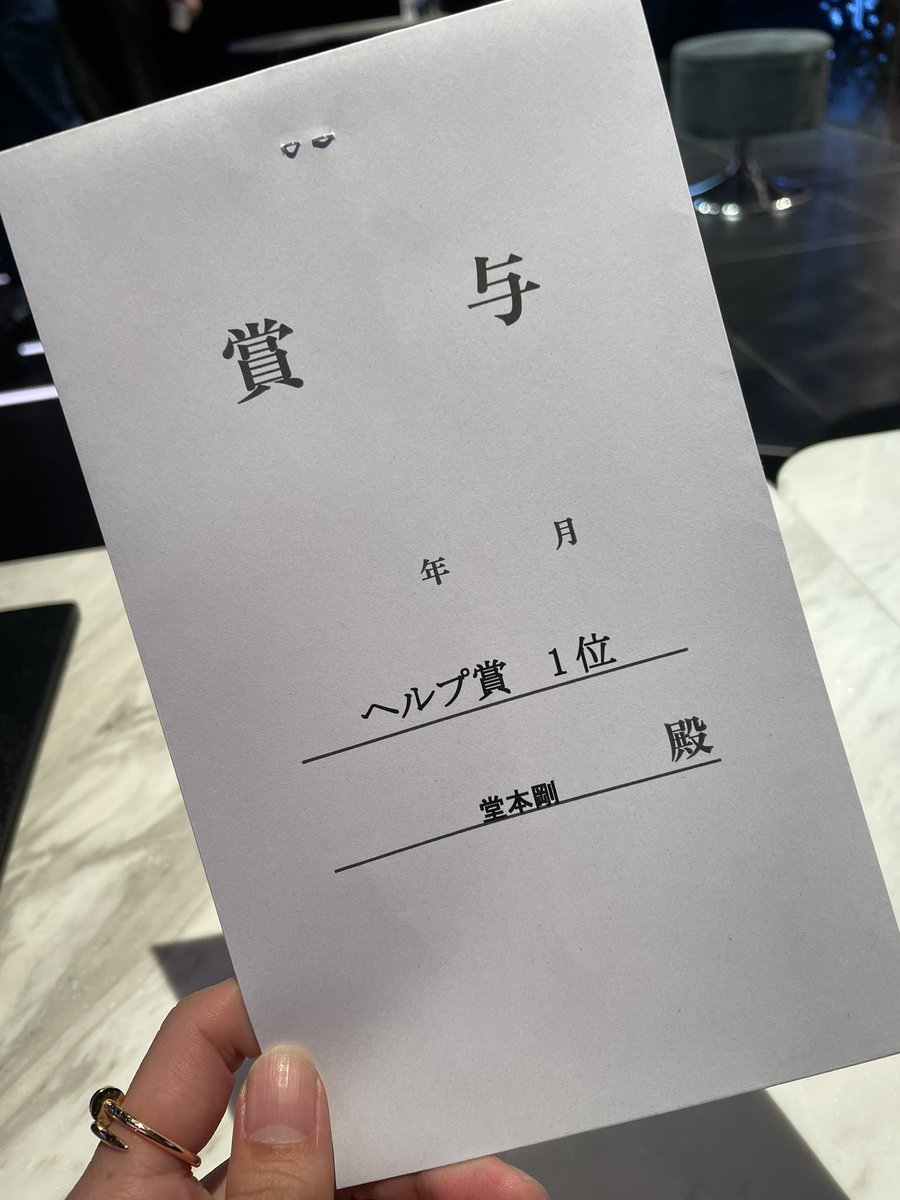 賞 与
年 月
ヘルプ賞 1位
堂本剛 殿